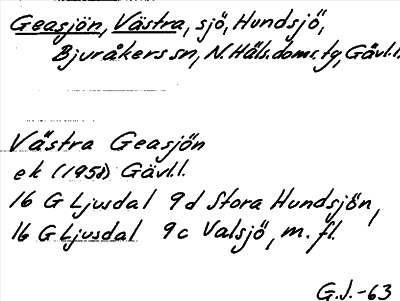 Geasjön, Västra, sjö, Hundsjö,
Bjuråkers sn, N. Häls. doms. tg, Gävl. l.
Västra Geasjön
ek (1958) Gävl. l.
16 G Ljusdal 9d Stora Hundsjön,
16 G Ljusdal 9c Valsjö, m. fl.
G. J. -63